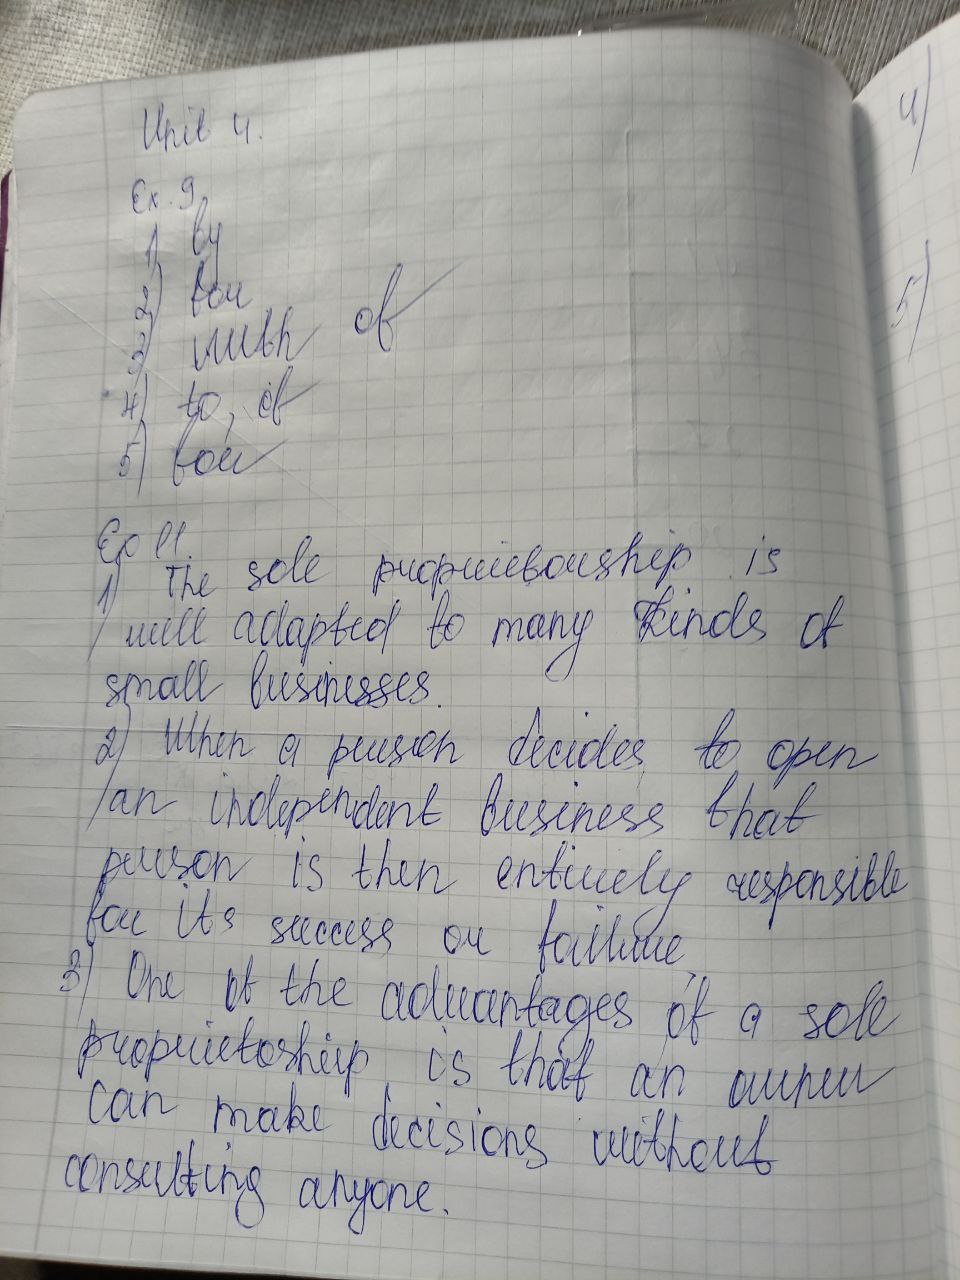 Unit 4.
Ex. 9
1) by
2) for
3) with of
4) to, of
5) for
Ex 11.
1) The sole proprietorship is
well adapted to many kinds of
small businesses.
2) When a person decides to open
an independent business that
person is then entirely responsible
for its success or failure
3) One of the advantages of a sole
proprietoship is that an owner
can make decisions without
consulting anyone.
4)
5)